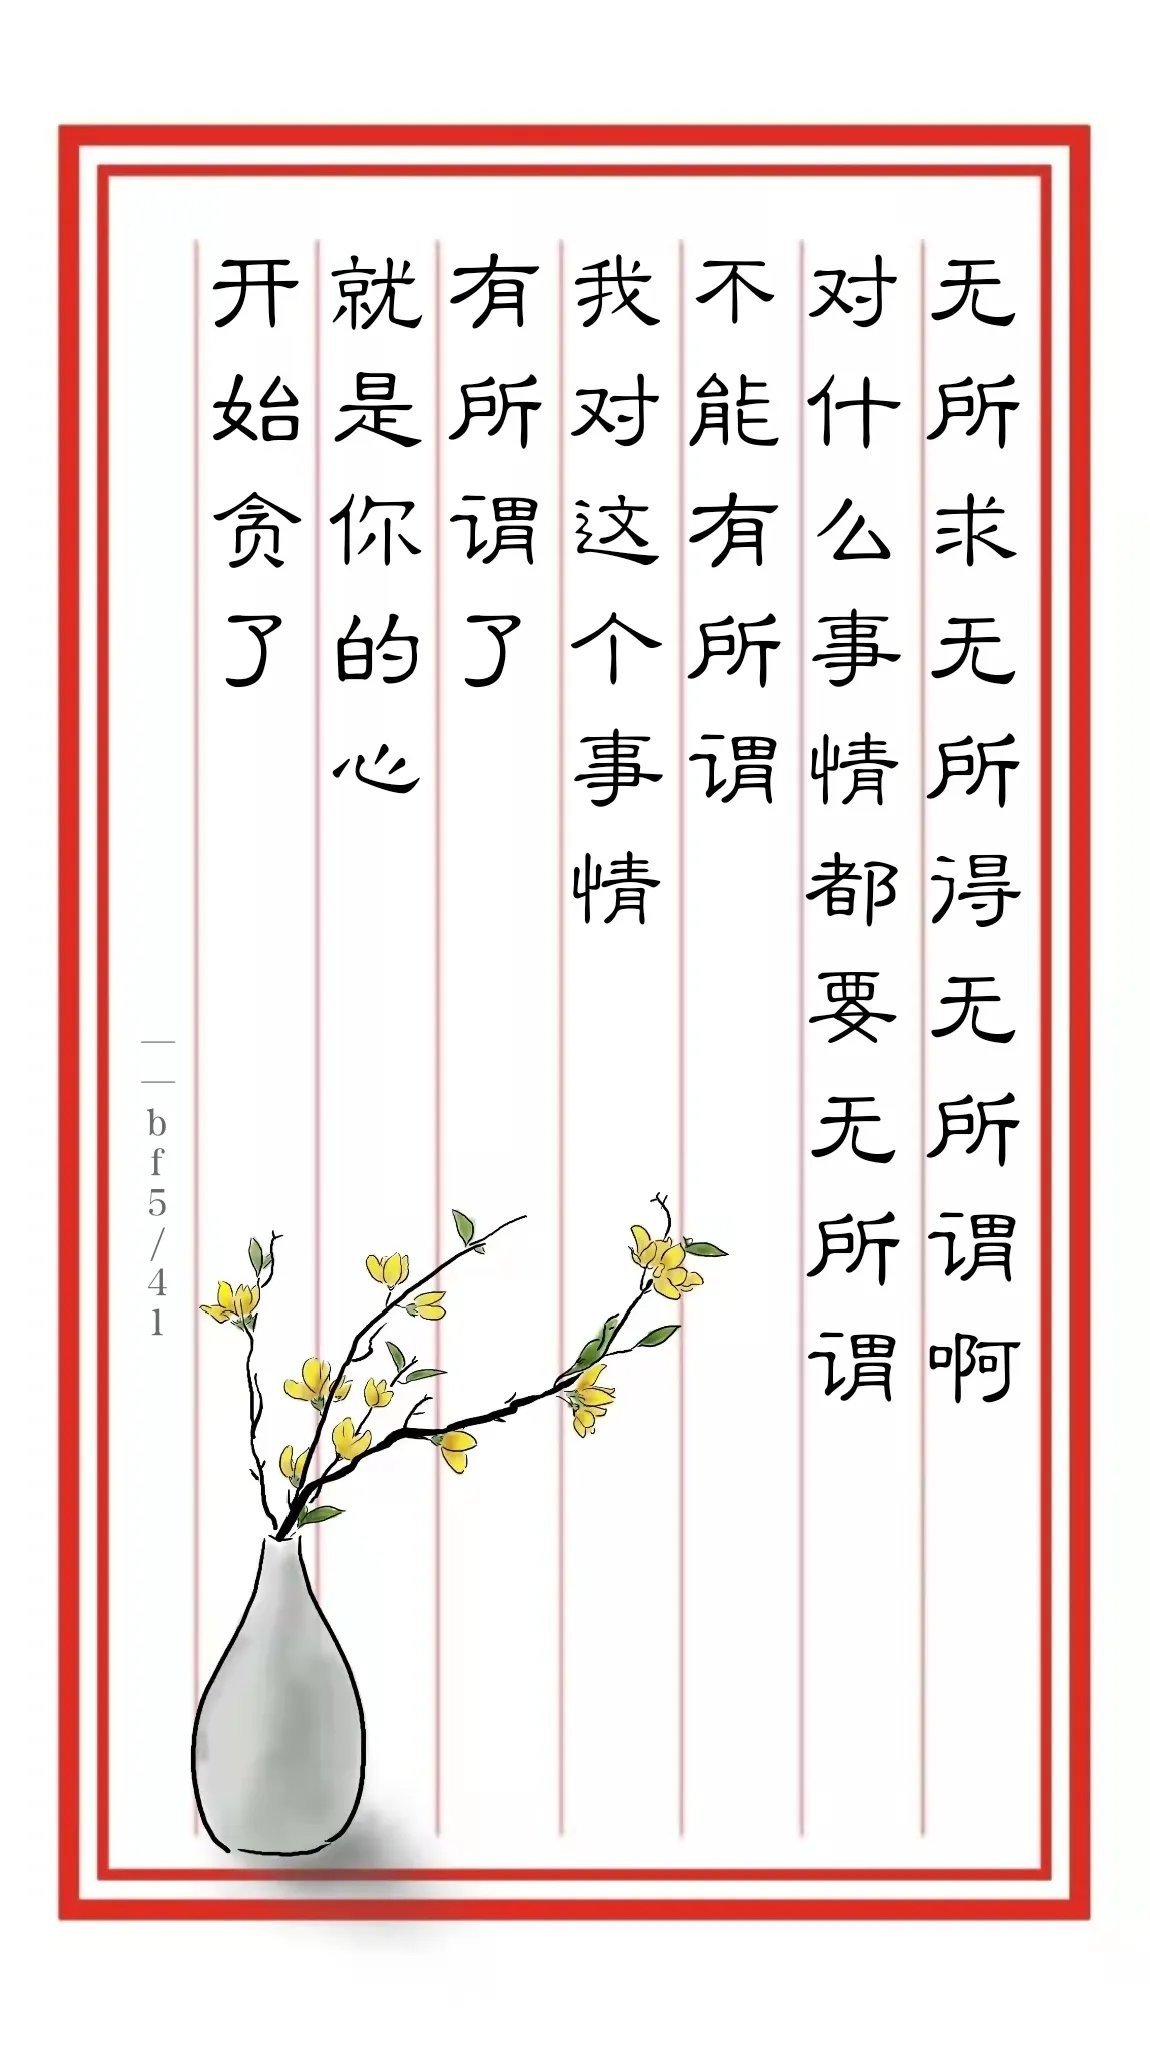 无所求无所得无所谓啊
对什么事情都要无所谓
不能有所谓
我对这个事情
有所谓了
就是你的心
开始贪了
——bf5/41